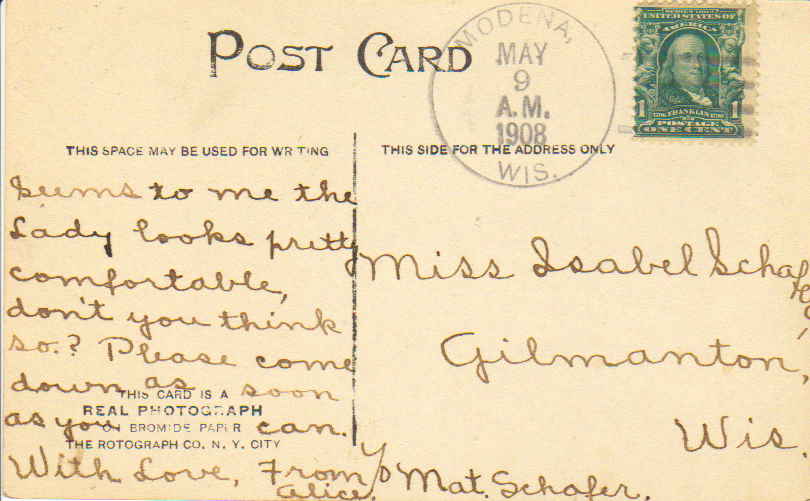 POST CARD
MODENA,
MAY
9
A.M.
1908
WIS.
SERIES 1902
UNITED STATES OF
AMERICA
1 1706 FRANKLIN 1790 1
POSTAGE
ONE CENT
THIS SPACE MAY BE USED FOR WRITING
THIS SIDE FOR THE ADDRESS ONLY
Seems to me the
Lady looks pretty
comfortable,
don't you think
so.? Please come
down as soon
as you can.
With Love, From
Alice.
THIS CARD IS A
REAL PHOTOGRAPH
ON BROMIDE PAPER
THE ROTOGRAPH CO. N. Y. CITY
Miss Isabel Schafer,
Gilmanton,
Wis.
c/o Mat. Schafer.